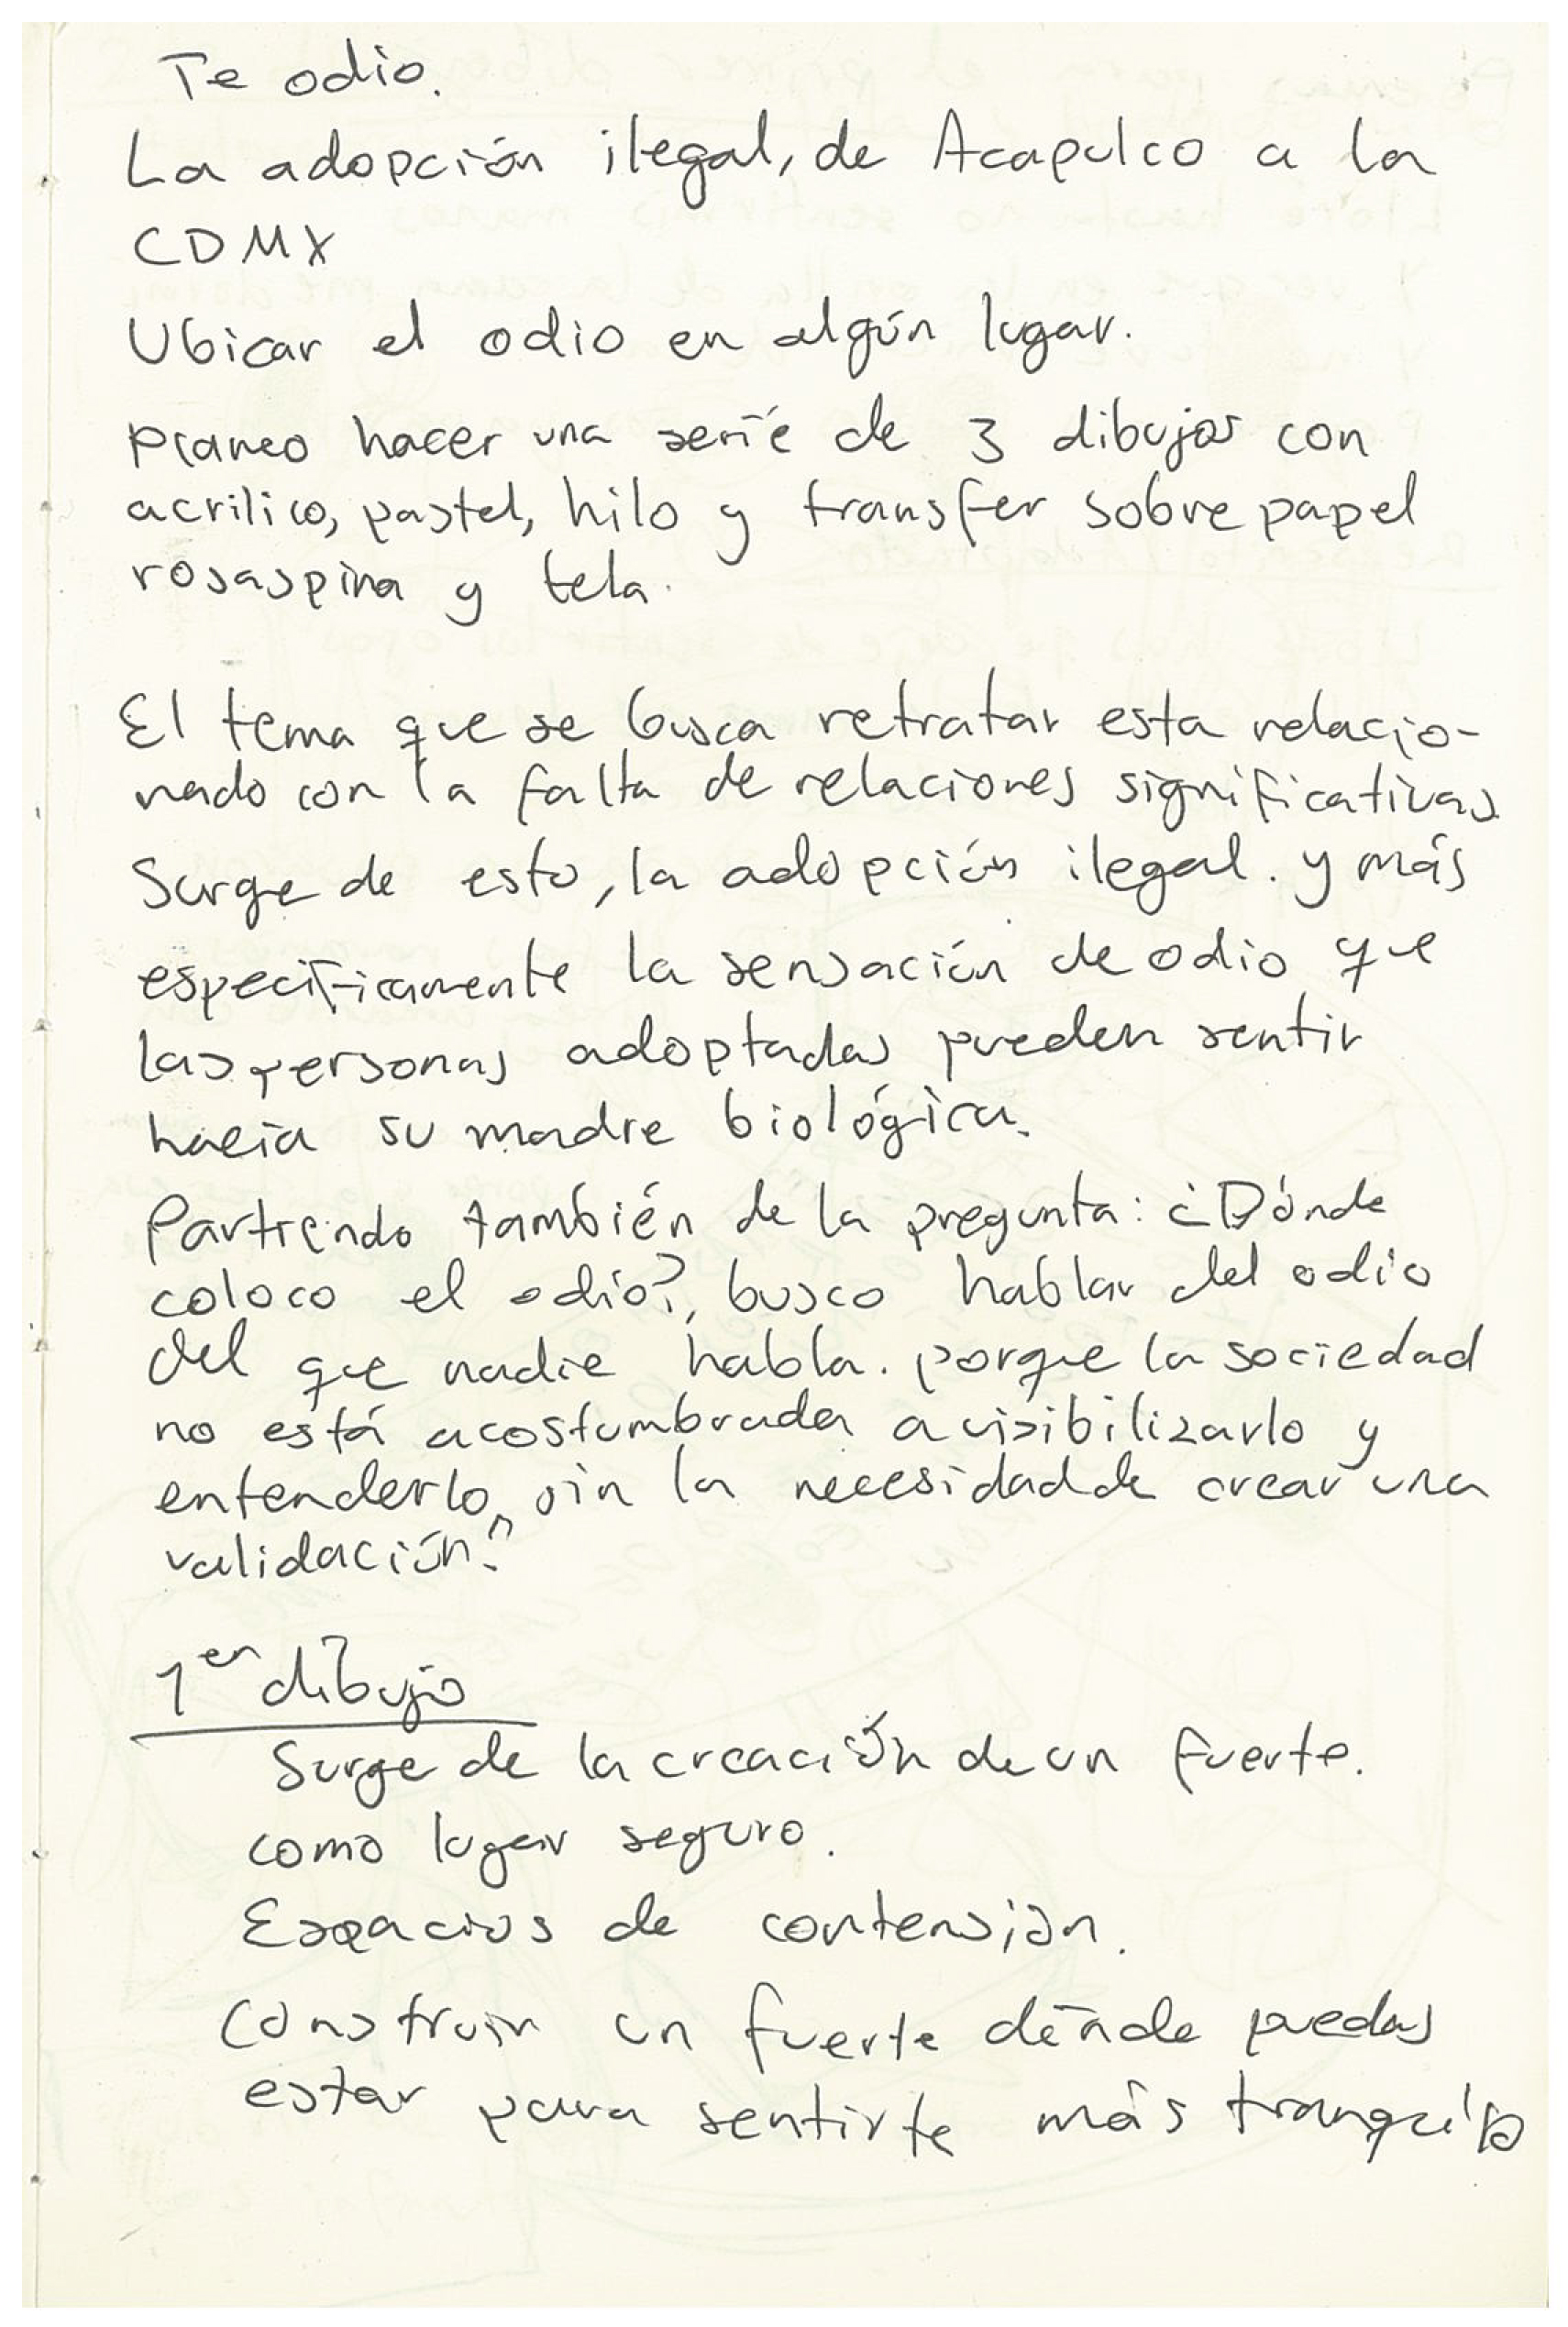 Te odio.
La adopción ilegal, de Acapulco a la
CDMX
Ubicar el odio en algún lugar.
Planeo hacer una serie de 3 dibujos con
acrilico, pastel, hilo y transfer sobre papel
rosaspina y tela.
El tema que se busca retratar esta relacio-
nado con la falta de relaciones significativas
Surge de esto, la adopción ilegal. y más
específicamente la sensación de odio que
las personas adoptadas pueden sentir
hacia su madre biológica.
Partiendo también de la pregunta: ¿Dónde
coloco el odio?, busco hablar del odio
del que nadie habla. porque la sociedad
no está acostumbrada a visibilizarlo y
entenderlo, sin la necesidad de crear una
validación.
1er dibujo
Surge de la creación de un fuerte.
como lugar seguro.
Espacios de contensión.
Construir un fuerte dónde puedas
estar para sentirte más tranquilo